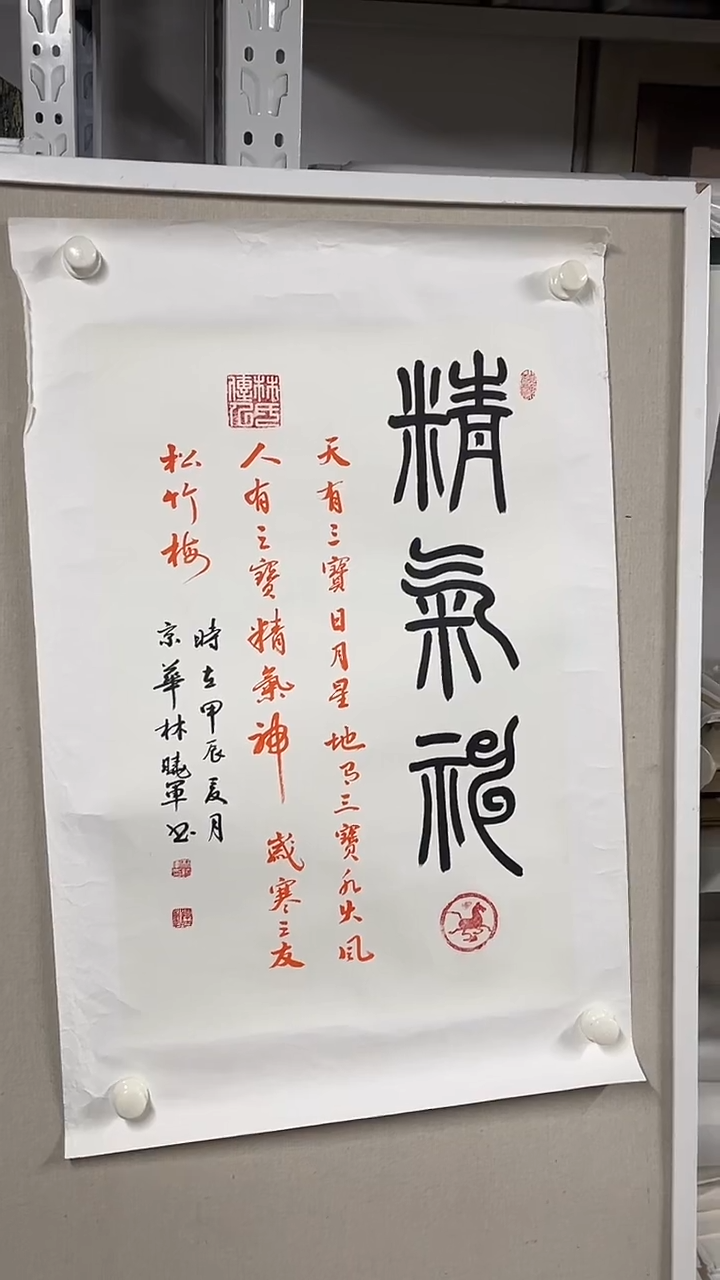 精氣神
天有三寶日月星地有三寶水火風
人有三寶精氣神歲寒三友
松竹梅
時在甲辰夏月
京華林曉軍書